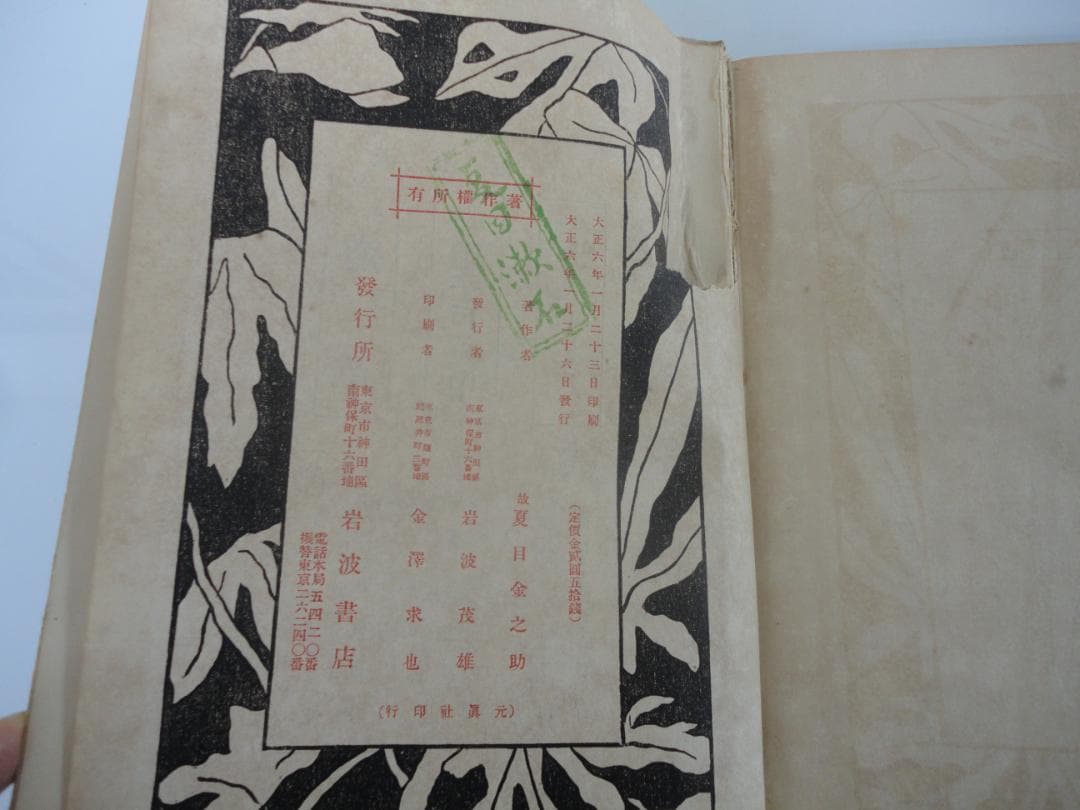 著作權所有
大正六年一月二十三日印刷
大正六年一月二十六日發行
(定價金貳圓五拾錢)
著作者 故 夏目金之助
發行者 東京市神田區南神保町十六番地 岩波茂雄
印刷者 金澤求也
發行所 東京市神田區南神保町十六番地 岩波書店
電話本局五四二〇番
振替東京二六二四〇番
(元眞社印行)
漱石